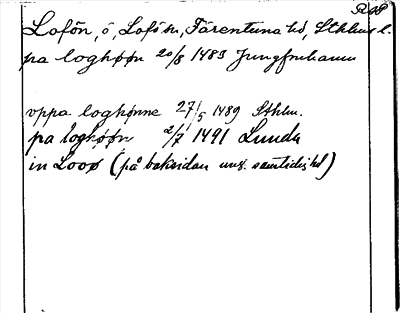 Lofön, ö, Lofö sn, Färentuna hd, Sthlms l.
pa loghøøn 20/8 1483 Jungfruhamn
vppa loghønne 27/5 1489 Sthlm.
pa loghøøn 2/7 1491 Lunda
in Looø (på baksidan ung. samtidig hd)